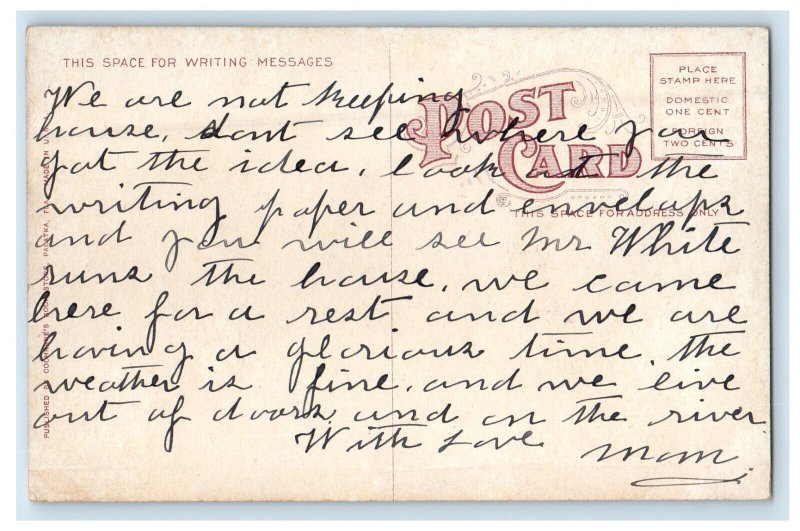 THIS SPACE FOR WRITING MESSAGES
POST CARD
PLACE
STAMP HERE
DOMESTIC
ONE CENT
FOREIGN
TWO CENTS
THIS SPACE FOR ADDRESS ONLY
We are not keeping
house, dont see where you
got the idea, look at the
writing paper and envelops
and you will see Mr White
runs the house, we came
here for a rest and we are
having a glorious time. the
weather is fine, and we live
out of doors and on the river.
With Love Mom
PUBLISHED BY COCHRANE'S BOOK STORE, PALATKA, FLA. MADE IN